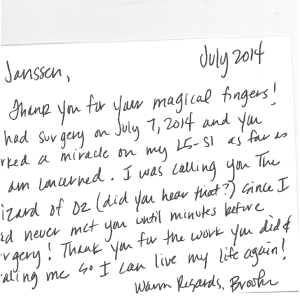 July 2014
Janssen,
Thank you for your magical fingers!
had surgery on July 7, 2014 and you
rked a miracle on my L5-S1 as far as
am concerned. I was calling you The
izard of Oz (did you hear that?) since I
ad never met you until minutes before
rgery! Thank you for the work you did &
aling me so I can live my life again!
Warm Regards, Brooke